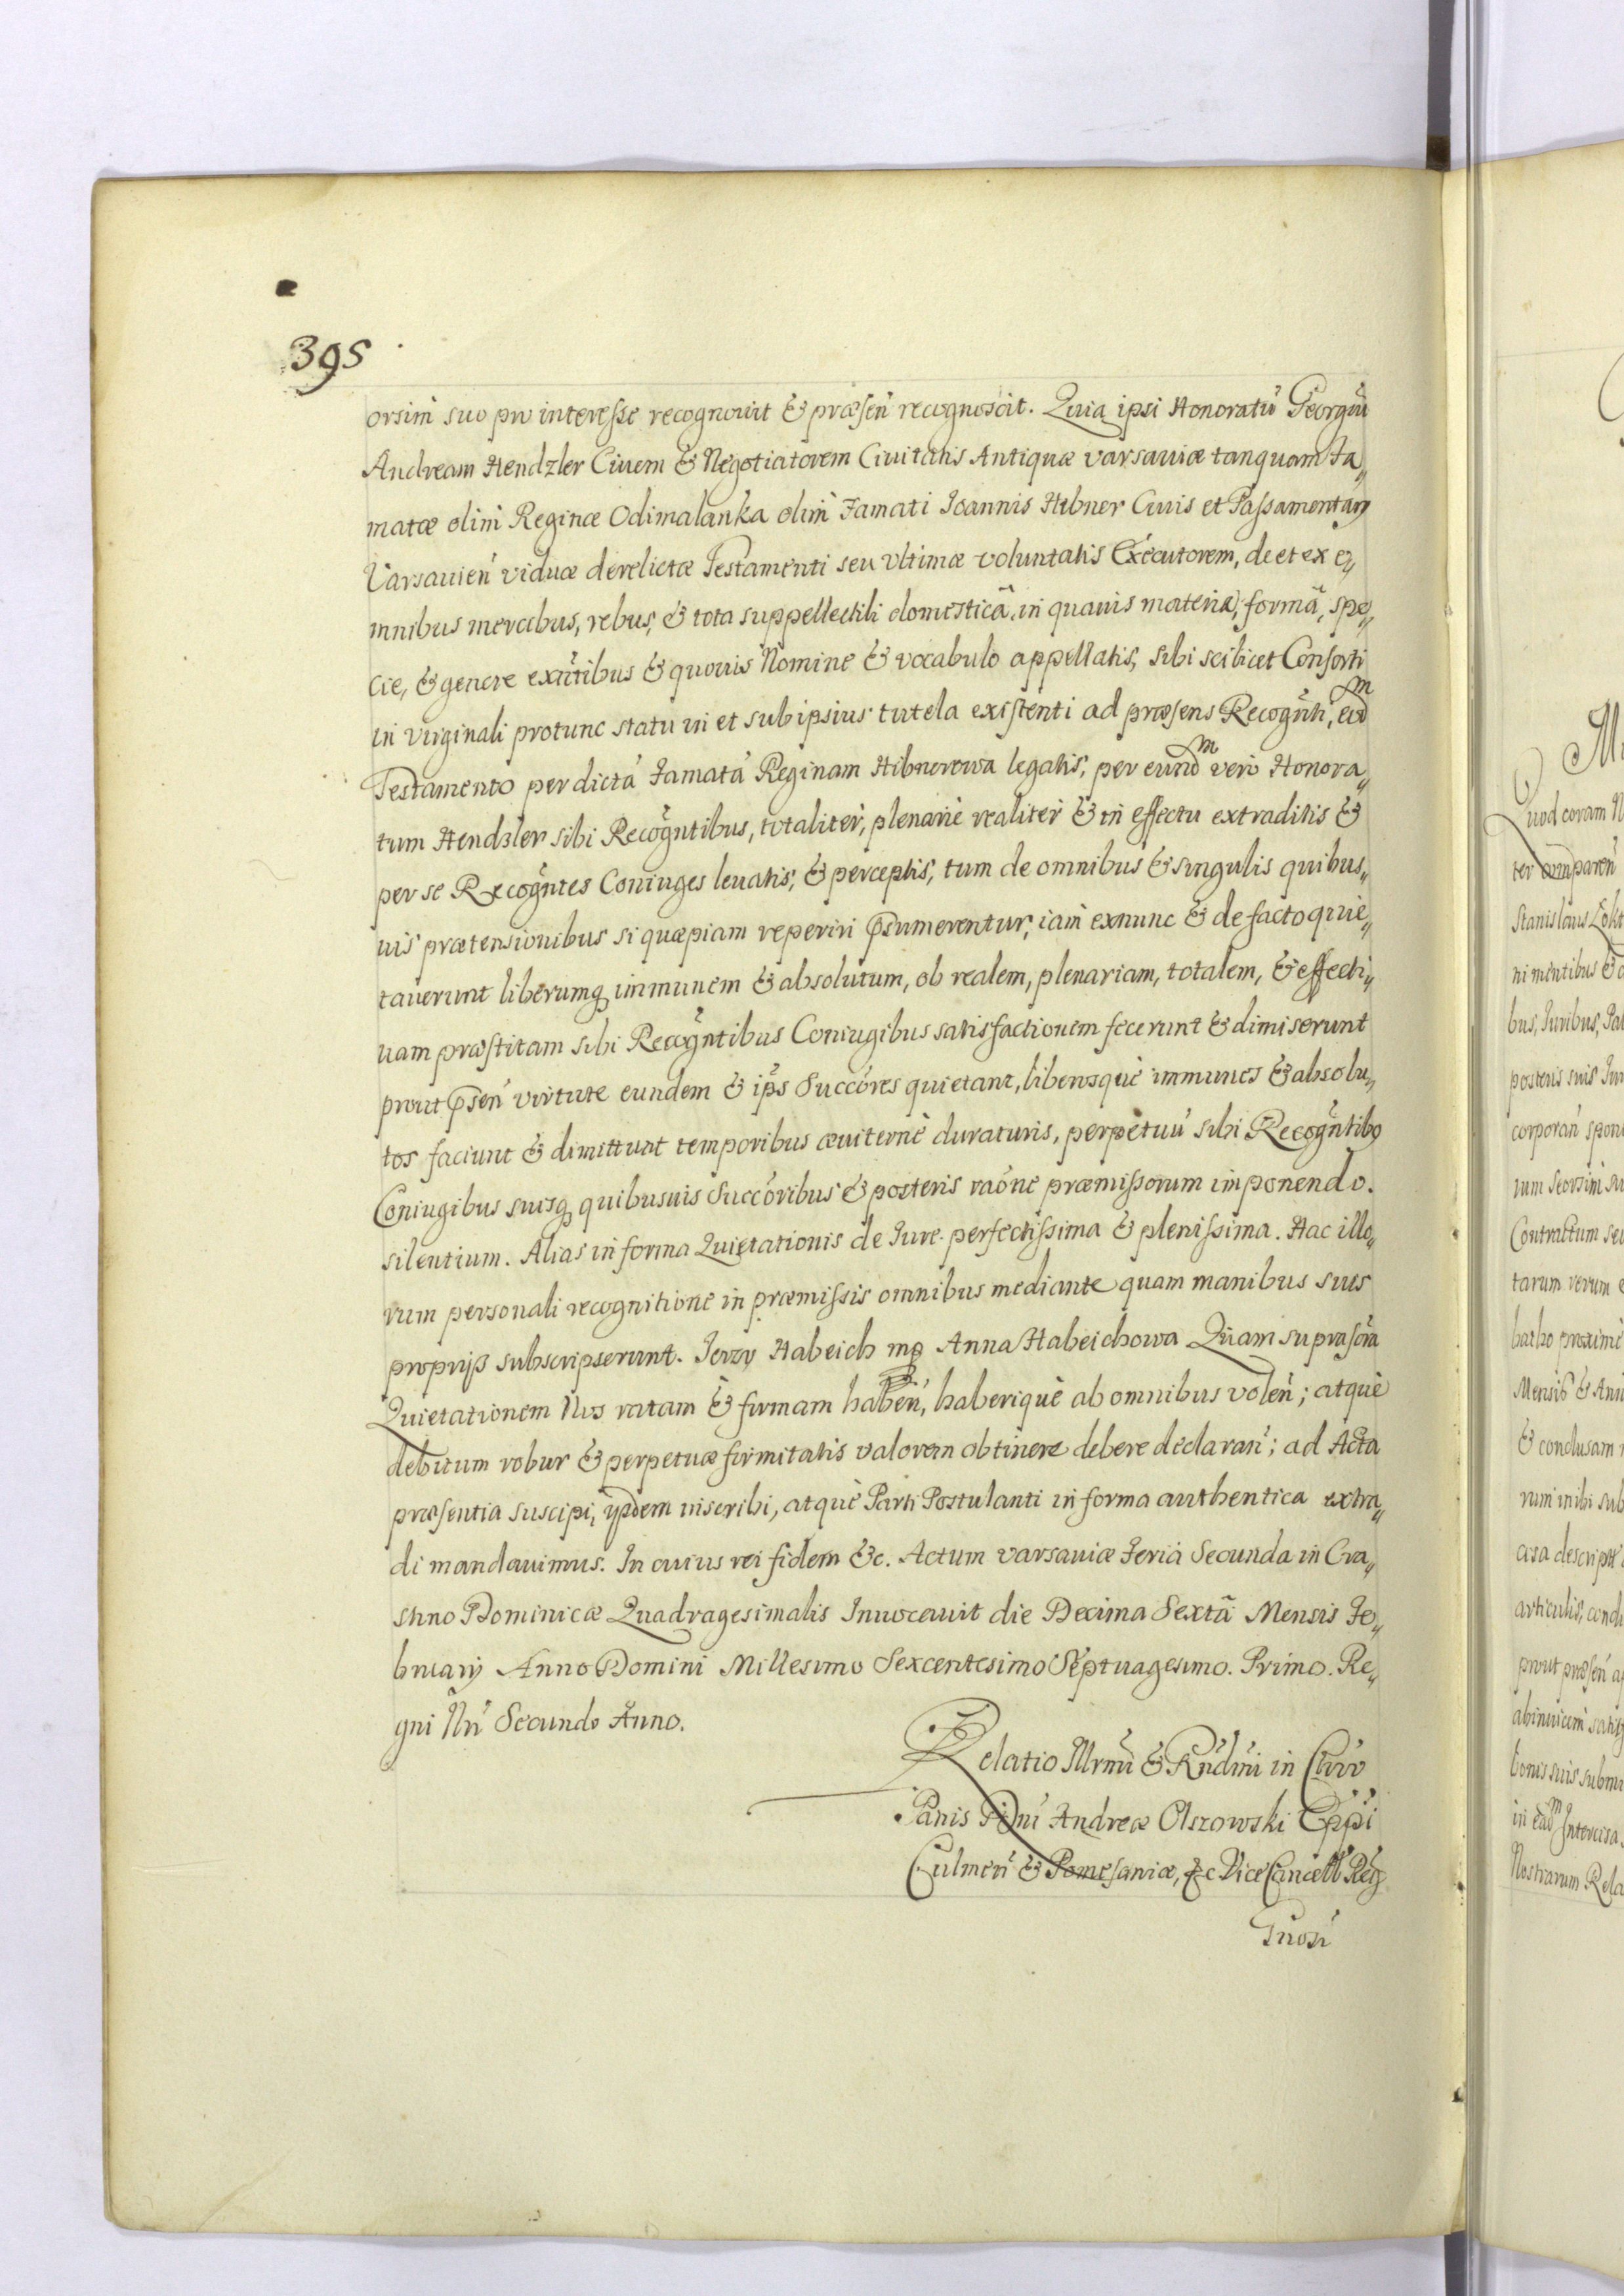 395
orsim suo pro interesse recognovit & præsen̄ recognoscit. Quia ipsi Honoratū Georgiū
Andream Hendzler Civem & Negotiatorem Civitatis Antiquæ varsaviæ tanquam Fa„
matæ olim Reginæ Odimalanka olim Famati Ioannis Hibner Civis et Passamentarÿ
Varsavien̄ viduæ derelictæ Testamenti seu vltimæ voluntatis Executorem, de et ex o„
mnibus mercibus, rebus, & tota suppellectili domesticâ, in quavis materiâ, formâ, spe„
cie, & genere exñtibus & quovis Nomine & vocabulo appellatis, sibi scilicet Consorti
in virginali protunc statu ui et sub ipsius tutela existenti ad præsens Recogñti, eod^m
Testamento per dictá Famatá Reginam Hibnerowa legatis, per eund^m verò Honora„
tum Hendzler sibi Recogñtibus, totaliter, plenariè realiter & in effectu extraditis &
per se Recogñtes Coniuges levatis, & perceptis, tum de omnibus & singulis quibus„
vis prætensionibus si quæpiam reperiri p̄sumerentur, iam exnunc & de facto quie„
taverunt liberumq immunem & absolutum, ob realem, plenariam, totalem, & effecti„
vam præstitam sibi Recogñtibus Coniugibus satisfactionem fecerunt & dimiserunt
prout p̄sen̄ virtute eundem & ip̄s Succōres quietant, liberosquè immunes & absolu„
tos faciunt & dimittunt temporibus æviternè duraturis, perpetuū sibi Recogñtibq
Coniugibus suisq quibusvis Succōribus & posteris raōne præmissorum imponendo.
silentium. Alias in forma Quietationis de Iure perfectissima & plenissima. Hac illo„
rum personali recognitione in præmissis omnibus mediante quam manibus suis
proprijs subscripserunt. Jerzy Habeich mp Anna Habeichowa Quam suprascr̄a
Quietationem Nos ratam & firmam haben̄, haberiquè ab omnibus volen̄; atquè
debitum robur & perpetuæ firmitatis valorem obtinere debere declaran̄; ad Acta
præsentia suscipi, ijsdem inscribi, atquè Parti Postulanti in forma authentica extra„
di mandavimus. In cuius rei fidem &c. Actum varsaviæ Feriâ Secunda in Cra„
stino Dominicæ Quadragesimalis Invocavit die Decima Sextâ Mensis Fe„
bruarij Anno Domini Millesimo Sexcentesimo Septuagesimo. Primo. Re„
gni Nr̄i Secundo Anno.
Relatio Illrm̄i & Rn̄dm̄i in Chr̄o
Patris Dn̄i Andreæ Olszowski Ep̄pi
Culmen̄ & Pomesaniæ, &c Vice Cancell Reg
M
uod coram N
ter comparen̄
Stanislaus
bus, Iuribus,
posteris suis
corporan̄
rum seorsim su
Contractum seu
tarum rerum
proximè
Mensis & Ann
& conclusam
rum inibi sub
cisa descript
articulis,
prout præsen̄
abinuicem satis
bonis suis
in ead^m Intercisa
Nostrarum Rela